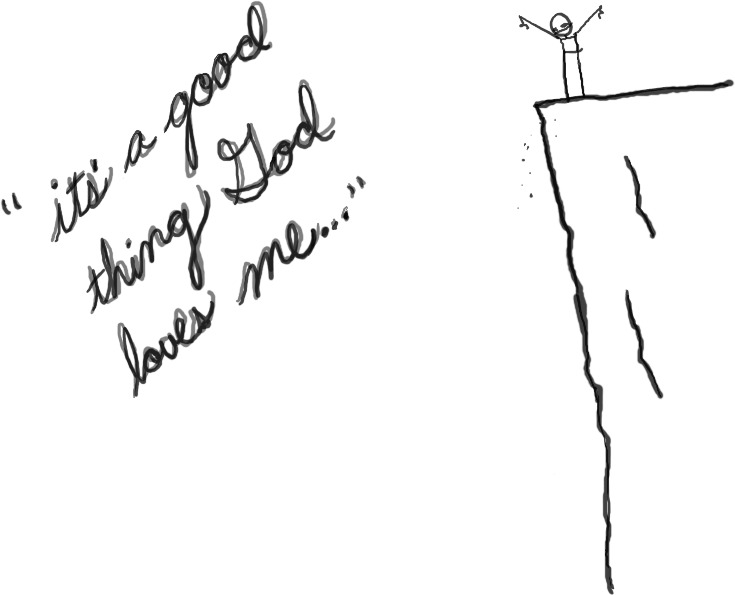 "its a good
thing God
loves me..."